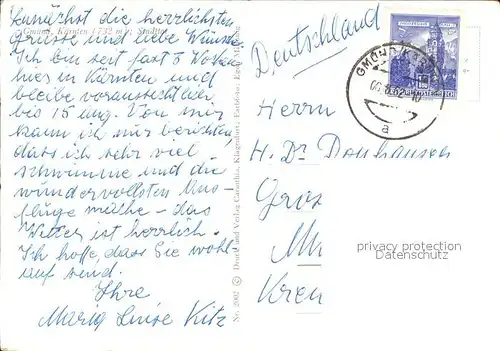 Zunächst die herzlichsten
Grüsse und liebe Wünsche.
Gmünd, Kärnten (732 m)
Ich bin seit fast 5 Wochen
hier in Kärnten und
bleibe voraussichtlich
bis 15 Aug. Von mir
kann ich nur berichten,
dass ich sehr viel
schwimme und die
wundervollsten Aus-
flüge mache - das
Wetter ist herrlich.
Ich hoffe dass Sie wohl-
auf sind.
Ihre
Maria Luise Kitz
Nr. 2002 © Druck und Verlag Carinthia, Klagenfurt
Deutschland
GMÜND
a
Herrn
H. Dr Donhausen
Gros
Kren
privacy protection
Datenschutz